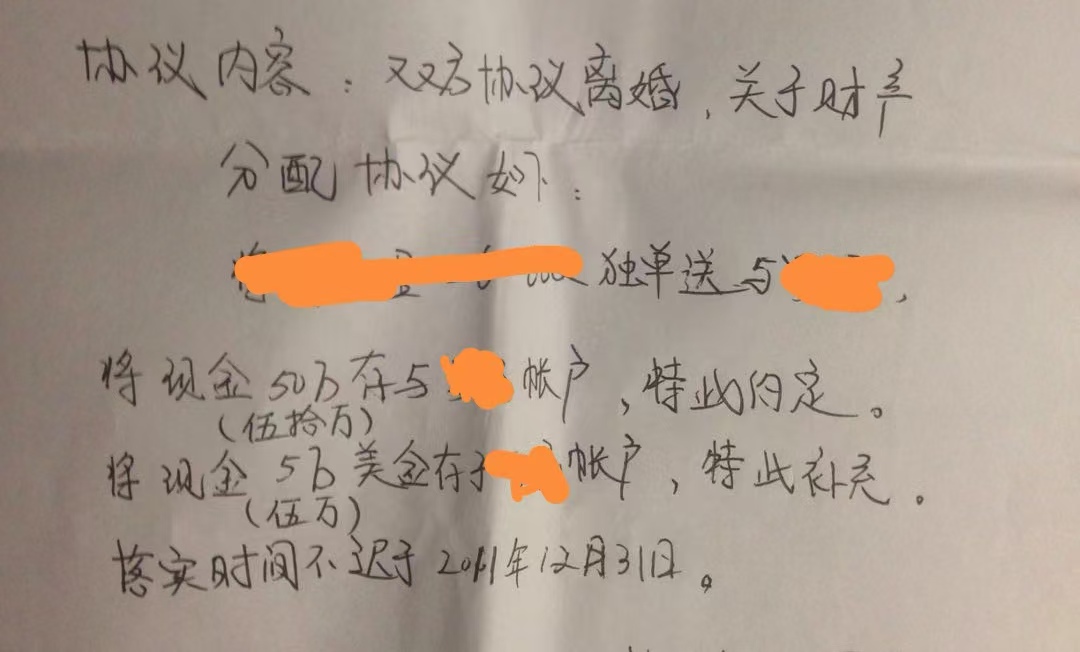 协议内容：双方协议离婚，关于财产
分配协议如下：
独单送与，
将现金50万存与帐户，特此约定。
（伍拾万）
将现金5万美金存于帐户，特此补充。
（伍万）
落实时间不迟于2011年12月31日。